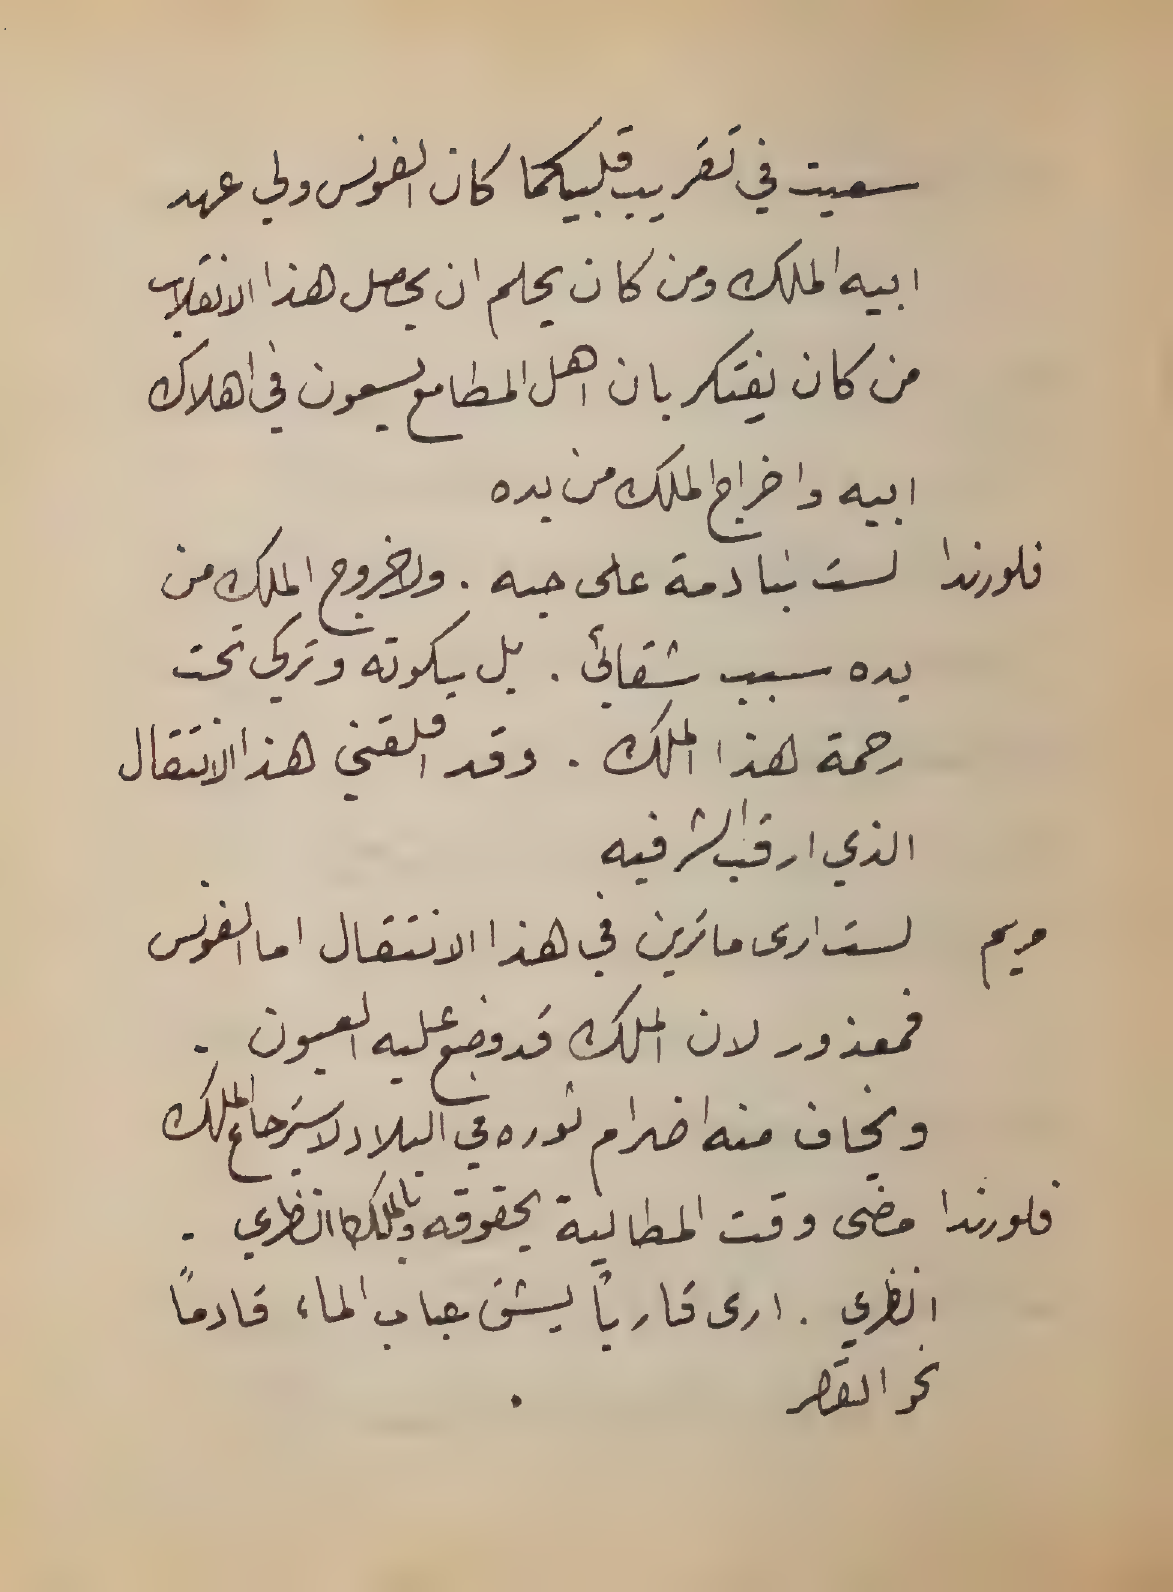 سعيت في تقريب قلبيكما كان الفونس ولي عهد
ابيه الملك ومن كان يحلم ان يحصل هذا الانقلاب
من كان يفتكر بان اهل المطامع يسعون في اهلاك
ابيه واخراج الملك من يده
فلورندا لست بنادمة على حبه . ولا خروج الملك من
يده سبب شقائي . بل سكوته وتركي تحت
رحمة هذا الملك . وقد اقلقني هذا الانتقال
الذي ارقب الشر فيه
مريم لست ارى ما ترين في هذا الانتقال اما الفونس
فمعذور لان الملك قد وضع عليه العيون .
ويخاف منه اضرام ثوره في البلاد لاسترجاع الملك
فلورندا مضى وقت المطالبة بحقوقه وبالملك انظري .
انظري . ارى قارباً يشق عباب الماء قادماً
نحو القصر .